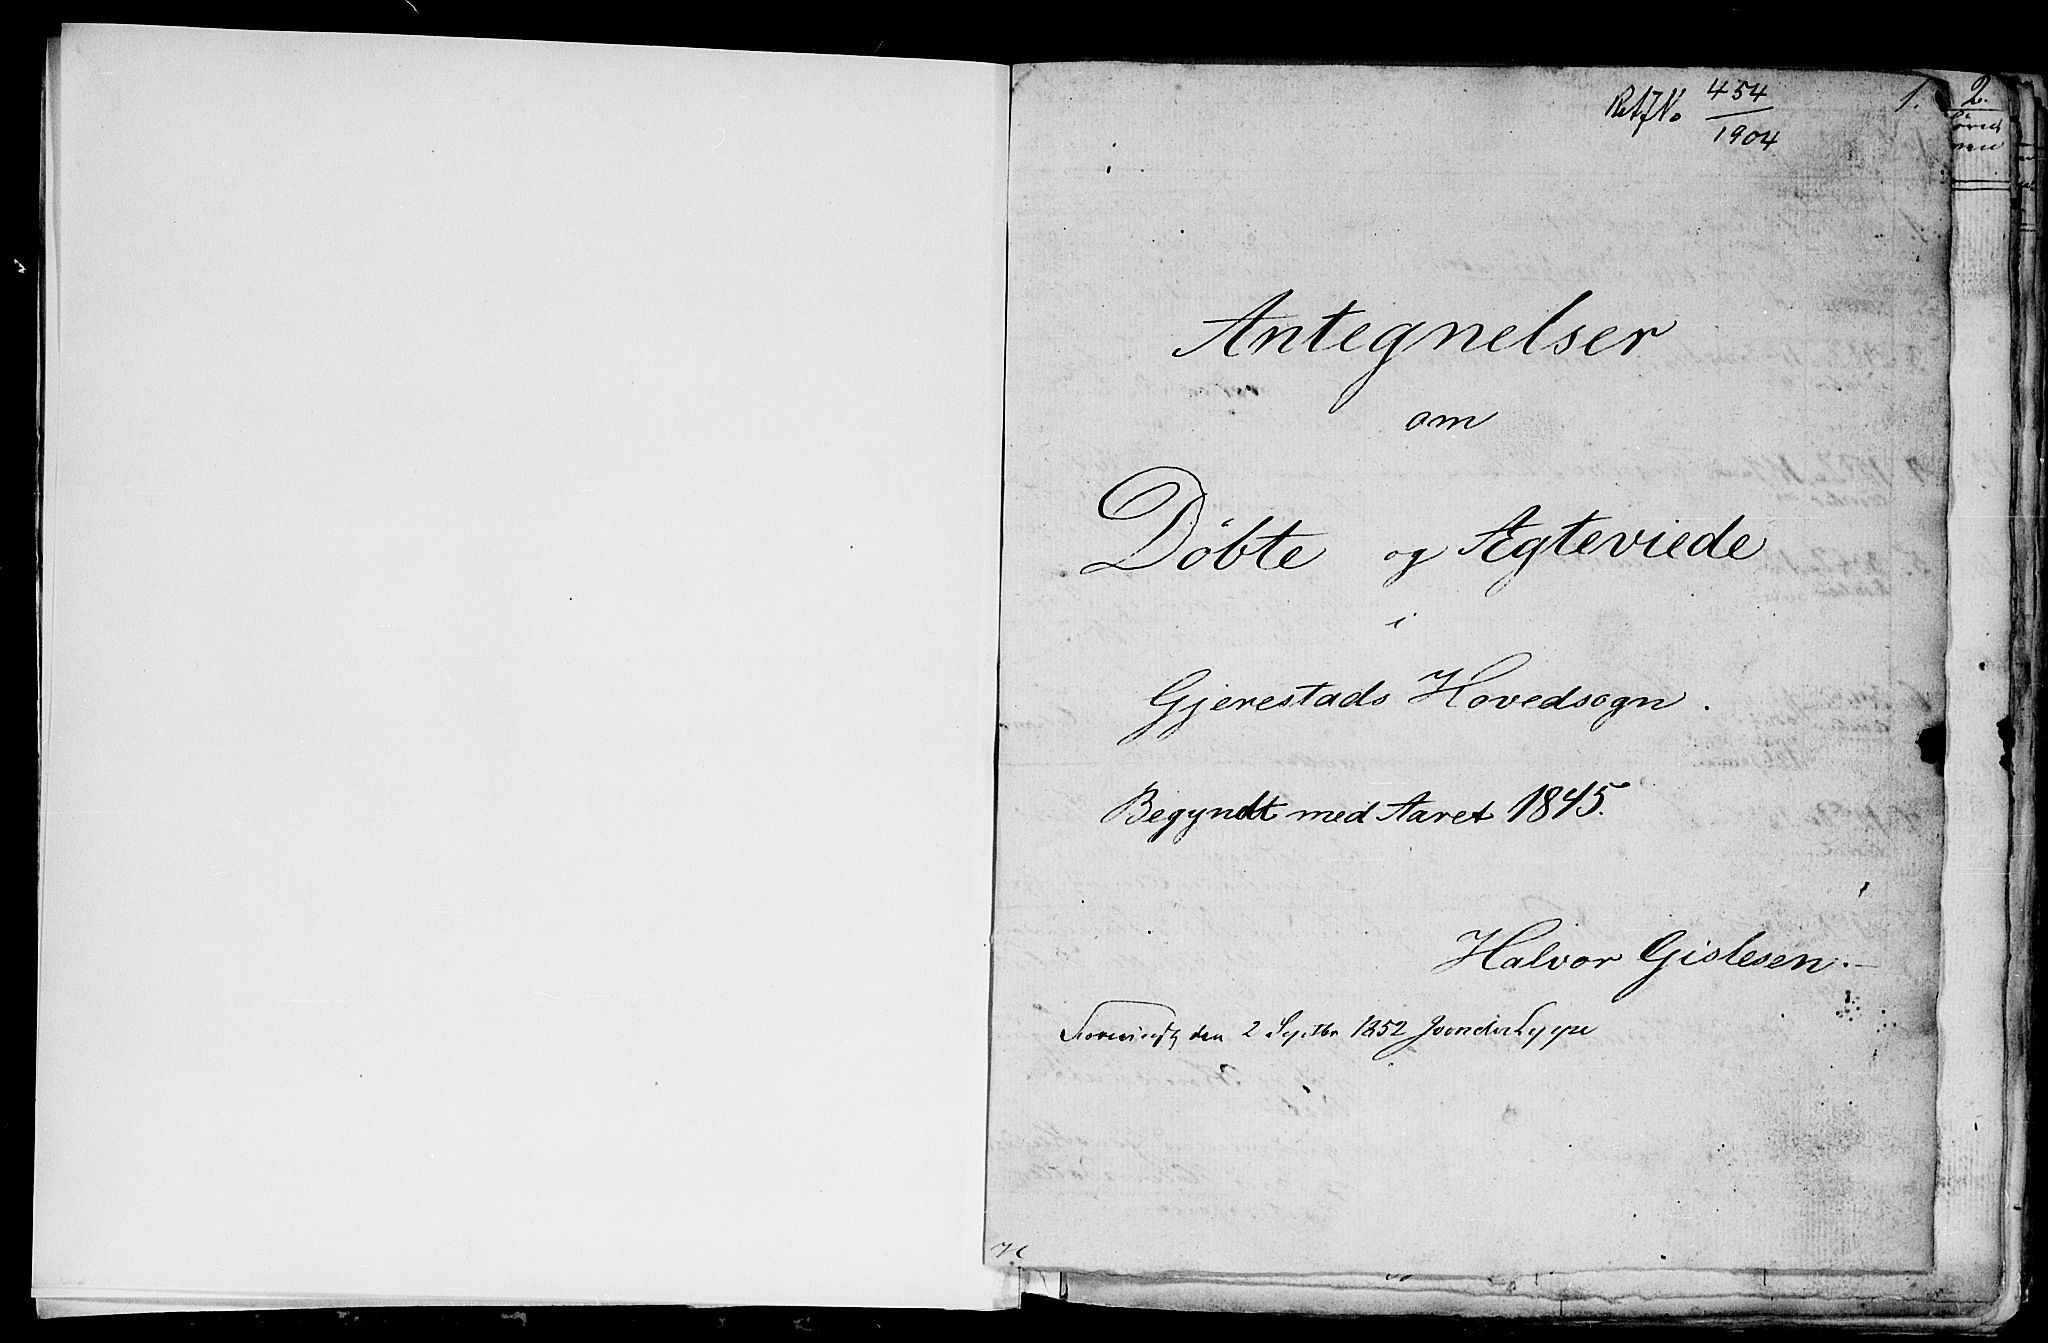 454
1904
1.
2.
Antegnelser
om
Döbte og Ægteviede
i
Gjerestads Hovedsogn.
Begyndt med Aaret 1845.
Halvor Gislesen.
den 2 Septbr 1852